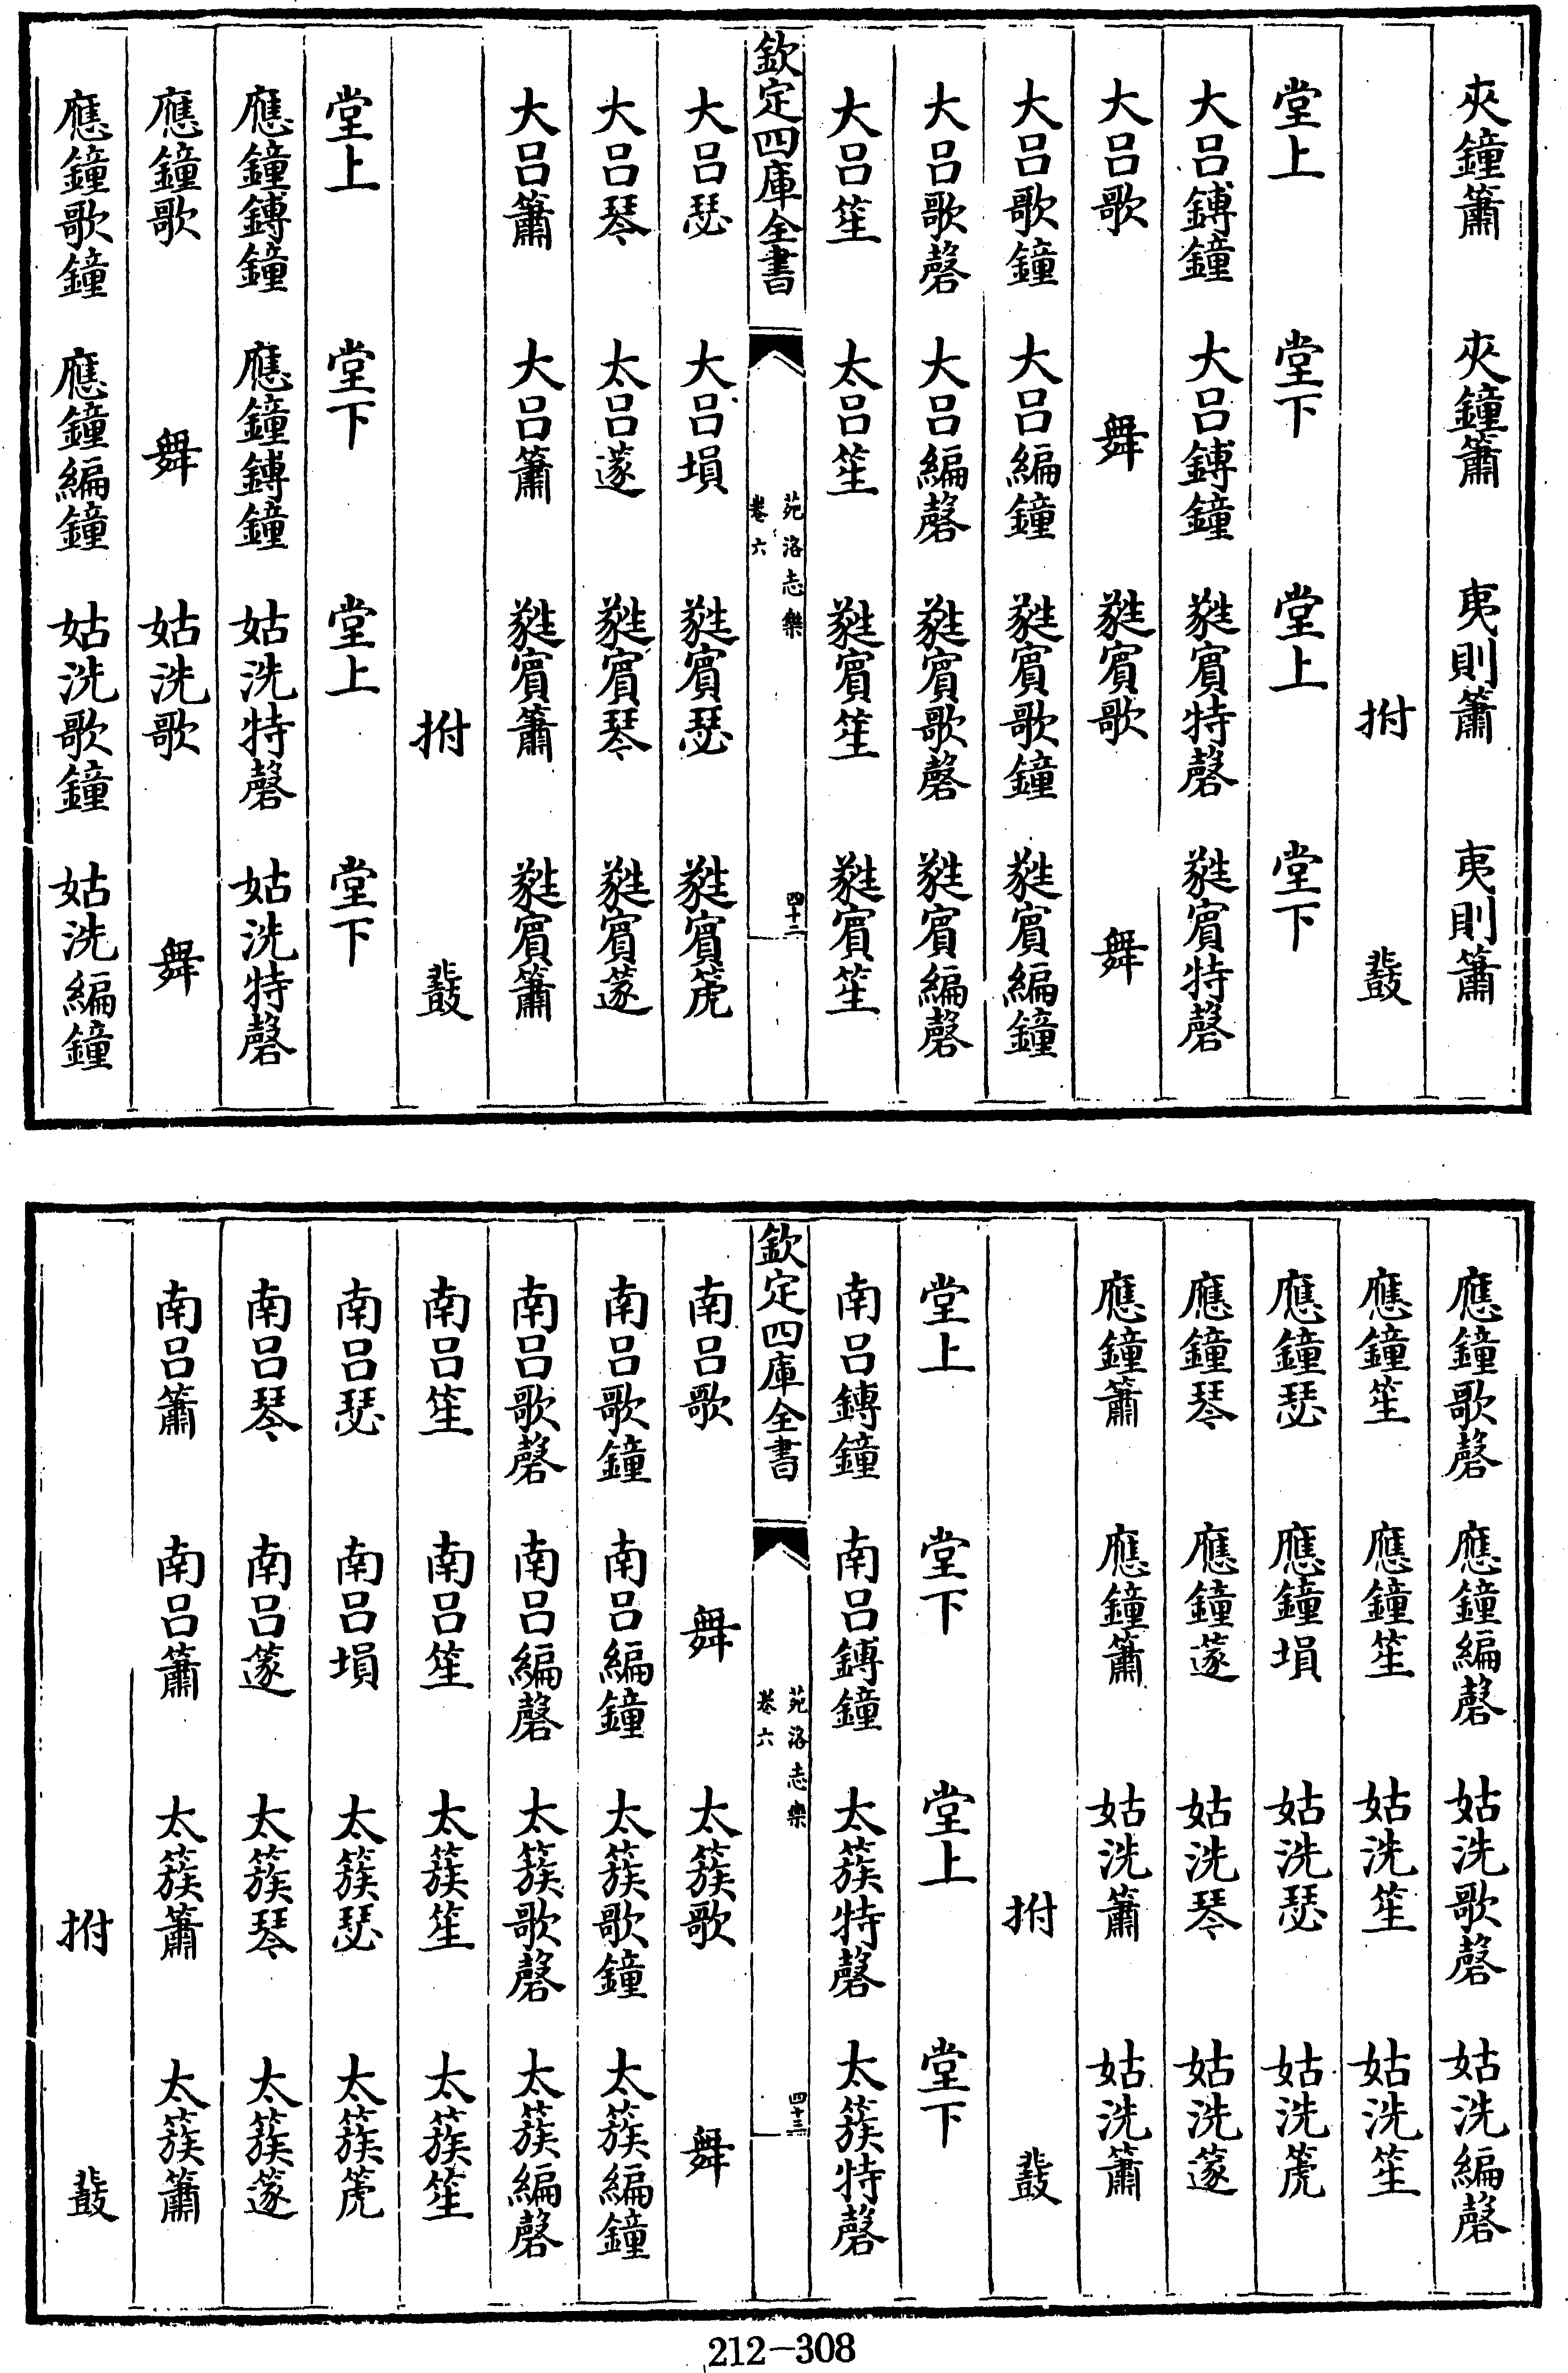 夾鐘簫 夾鐘簫 夷則簫 夷則簫
拊 鼗
堂上 堂下 堂上 堂下
大呂鎛鐘 大呂鎛鐘 蕤賓特磬 蕤賓特磬
大呂歌 舞 蕤賓歌 舞
大呂歌鐘 大呂編鐘 蕤賓歌鐘 蕤賓編鐘
大呂歌磬 大呂編磬 蕤賓歌磬 蕤賓編磬
大呂笙 太呂笙 蕤賓笙 蕤賓笙
欽定四庫全書 苑洛志樂 卷六 四十二
大呂瑟 大呂塤 蕤賓瑟 蕤賓箎
大呂琴 太呂篴 蕤賓琴 蕤賓篴
大呂簫 大呂簫 蕤賓簫 蕤賓簫
拊 鼗
堂上 堂下 堂上 堂下
應鐘鎛鐘 應鐘鎛鐘 姑洗特磬 姑洗特磬
應鐘歌 舞 姑洗歌 舞
應鐘歌鐘 應鐘編鐘 姑洗歌鐘 姑洗編鐘
應鐘歌磬 應鐘編磬 姑洗歌磬 姑洗編磬
應鐘笙 應鐘笙 姑洗笙 姑洗笙
應鐘瑟 應鐘塤 姑洗瑟 姑洗箎
應鐘琴 應鐘篴 姑洗琴 姑洗篴
應鐘簫 應鐘簫 姑洗簫 姑洗簫
拊 鼗
堂上 堂下 堂上 堂下
南呂鎛鐘 南呂鎛鐘 太簇特磬 太簇特磬
欽定四庫全書 苑洛志樂 卷六 四十三
南呂歌 舞 太簇歌 舞
南呂歌鐘 南呂編鐘 太簇歌鐘 太簇編鐘
南呂歌磬 南呂編磬 太簇歌磬 太簇編磬
南呂笙 南呂笙 太簇笙 太簇笙
南呂瑟 南呂塤 太簇瑟 太簇箎
南呂琴 南呂篴 太簇琴 太簇篴
南呂簫 南呂簫 太簇簫 太簇簫
拊 鼗
212-308